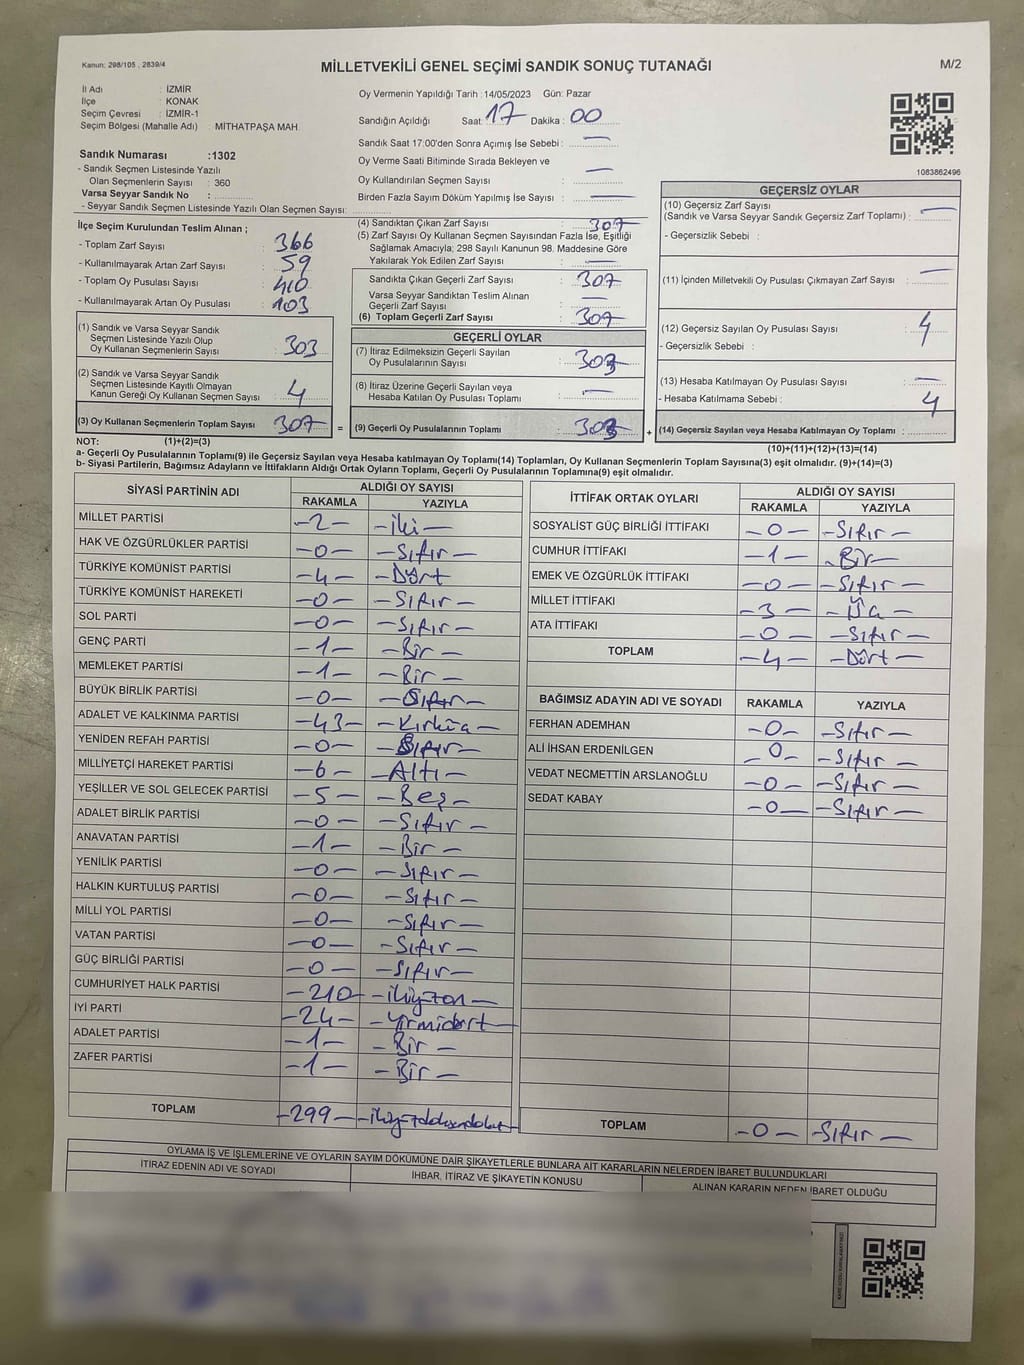 Kanun: 298/105 , 2839/4
MİLLETVEKİLİ GENEL SEÇİMİ SANDIK SONUÇ TUTANAĞI
M/2
İl Adı : İZMİR
İlçe : KONAK
Seçim Çevresi : İZMİR-1
Seçim Bölgesi (Mahalle Adı) : MİTHATPAŞA MAH
Sandık Numarası :1302
- Sandık Seçmen Listesinde Yazılı
Olan Seçmenlerin Sayısı : 360
Varsa Seyyar Sandık No :
- Seyyar Sandık Seçmen Listesinde Yazılı Olan Seçmen Sayısı:
Oy Vermenin Yapıldığı Tarih :14/05/2023 Gün: Pazar
Sandığın Açıldığı Saat: 17 Dakika : 00
Sandık Saat 17:00'den Sonra Açımış İse Sebebi : —
Oy Verme Saati Bitiminde Sırada Bekleyen ve
Oy Kullandırılan Seçmen Sayısı : —
Birden Fazla Sayım Döküm Yapılmış İse Sayısı : —
1083862496
İlçe Seçim Kurulundan Teslim Alınan ;
- Toplam Zarf Sayısı : 366
- Kullanılmayarak Artan Zarf Sayısı : 59
- Toplam Oy Pusulası Sayısı : 410
- Kullanılmayarak Artan Oy Pusulası : 103
(1) Sandık ve Varsa Seyyar Sandık
Seçmen Listesinde Yazılı Olup
Oy Kullanan Seçmenlerin Sayısı : 303
(2) Sandık ve Varsa Seyyar Sandık
Seçmen Listesinde Kayıtlı Olmayan
Kanun Gereği Oy Kullanan Seçmen Sayısı : 4
(3) Oy Kullanan Seçmenlerin Toplam Sayısı : 307
(1)+(2)=(3)
(4) Sandıktan Çıkan Zarf Sayısı : 307
(5) Zarf Sayısı Oy Kullanan Seçmen Sayısından Fazla İse, Eşitliği
Sağlamak Amacıyla; 298 Sayılı Kanunun 98. Maddesine Göre
Yakılarak Yok Edilen Zarf Sayısı : —
Sandıkta Çıkan Geçerli Zarf Sayısı : 307
Varsa Seyyar Sandıktan Teslim Alınan
Geçerli Zarf Sayısı : —
(6) Toplam Geçerli Zarf Sayısı : 307
GEÇERLİ OYLAR
(7) İtiraz Edilmeksizin Geçerli Sayılan
Oy Pusulalarının Sayısı : 303
(8) İtiraz Üzerine Geçerli Sayılan veya
Hesaba Katılan Oy Pusulası Toplamı : —
= (9) Geçerli Oy Pusulalarının Toplamı : 303
GEÇERSİZ OYLAR
(10) Geçersiz Zarf Sayısı
(Sandık ve Varsa Seyyar Sandık Geçersiz Zarf Toplamı) : —
- Geçersizlik Sebebi :
(11) İçinden Milletvekili Oy Pusulası Çıkmayan Zarf Sayısı : —
(12) Geçersiz Sayılan Oy Pusulası Sayısı : 4
- Geçersizlik Sebebi :
(13) Hesaba Katılmayan Oy Pusulası Sayısı : —
- Hesaba Katılmama Sebebi :
+ (14) Geçersiz Sayılan veya Hesaba Katılmayan Oy Toplamı : 4
(10)+(11)+(12)+(13)=(14)
NOT:
a- Geçerli Oy Pusulasının Toplamı(9) ile Geçersiz Sayılan veya Hesaba katılmayan Oy Toplamı(14) Toplamları, Oy Kullanan Seçmenlerin Toplam Sayısına(3) eşit olmalıdır. (9)+(14)=(3)
b- Siyasi Partilerin, Bağımsız Adayların ve İttifakların Aldığı Ortak Oyların Toplamı, Geçerli Oy Pusulalarının Toplamına(9) eşit olmalıdır.
SİYASİ PARTİNİN ADI ALDIĞI OY SAYISI
RAKAMLA YAZIYLA
MİLLET PARTİSİ -2- -iki-
HAK VE ÖZGÜRLÜKLER PARTİSİ -0- -Sıfır-
TÜRKİYE KOMÜNİST PARTİSİ -4- -Dört
TÜRKİYE KOMÜNİST HAREKETİ -0- -Sıfır-
SOL PARTİ -0- -Sıfır-
GENÇ PARTİ -1- -Bir-
MEMLEKET PARTİSİ -1- -Bir-
BÜYÜK BİRLİK PARTİSİ -0- -Sıfır-
ADALET VE KALKINMA PARTİSİ -43- -Kırküç-
YENİDEN REFAH PARTİSİ -0- -Sıfır-
MİLLİYETÇİ HAREKET PARTİSİ -6- -Altı-
YEŞİLLER VE SOL GELECEK PARTİSİ -5- -Beş-
ADALET BİRLİK PARTİSİ -0- -Sıfır-
ANAVATAN PARTİSİ -1- -Bir-
YENİLİK PARTİSİ -0- -Sıfır-
HALKIN KURTULUŞ PARTİSİ -0- -Sıfır-
MİLLİ YOL PARTİSİ -0- -Sıfır-
VATAN PARTİSİ -0- -Sıfır-
GÜÇ BİRLİĞİ PARTİSİ -0- -Sıfır-
CUMHURİYET HALK PARTİSİ -210- -ikiyüzon-
İYİ PARTİ -24- -Yirmidört-
ADALET PARTİSİ -1- -Bir-
ZAFER PARTİSİ -1- -Bir-
TOPLAM -299-
İTTİFAK ORTAK OYLARI ALDIĞI OY SAYISI
RAKAMLA YAZIYLA
SOSYALİST GÜÇ BİRLİĞİ İTTİFAKI -0- -Sıfır-
CUMHUR İTTİFAKI -1- -Bir-
EMEK VE ÖZGÜRLÜK İTTİFAKI -0- -Sıfır-
MİLLET İTTİFAKI -3- -Üç-
ATA İTTİFAKI -0- -Sıfır-
TOPLAM -4- -Dört-
BAĞIMSIZ ADAYIN ADI VE SOYADI RAKAMLA YAZIYLA
FERHAN ADEMHAN -0- -Sıfır-
ALİ İHSAN ERDENİLGEN -0- -Sıfır-
VEDAT NECMETTİN ARSLANOĞLU -0- -Sıfır-
SEDAT KABAY -0- -Sıfır-
TOPLAM -0- -Sıfır-
OYLAMA İŞ VE İŞLEMLERİNE VE OYLARIN SAYIM DÖKÜMÜNE DAİR ŞİKAYETLERLE BUNLARA AİT KARARLARIN NELERDEN İBARET BULUNDUKLARI
İTİRAZ EDENİN ADI VE SOYADI İHBAR, İTİRAZ VE ŞİKAYETİN KONUSU ALINAN KARARIN NEDEN İBARET OLDUĞU